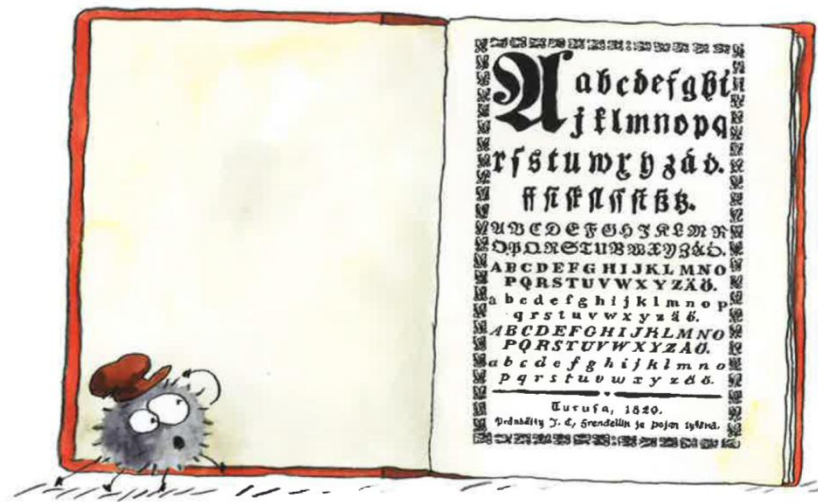 A abcdefghi
jklmnopq
rſstuwxyzäö.
ff ſi ſk ſl ſſ ſt ß tz.
ABCDEFGHIJKLMN
OPQRSTUVWXYZÄÖ.
ABCDEFGHIJKLMNO
PQRSTUVWXYZÄÖ.
abcdefghijklmnop
qrstuvwxyzäö.
ABCDEFGHIJKLMNO
PQRSTUVWXYZÄÖ.
abcdefghijklmno
pqrstuvwxyzäö.
Turuſa, 1820.
Prändätty J. C. Frendellin ja Pojan tykönä.